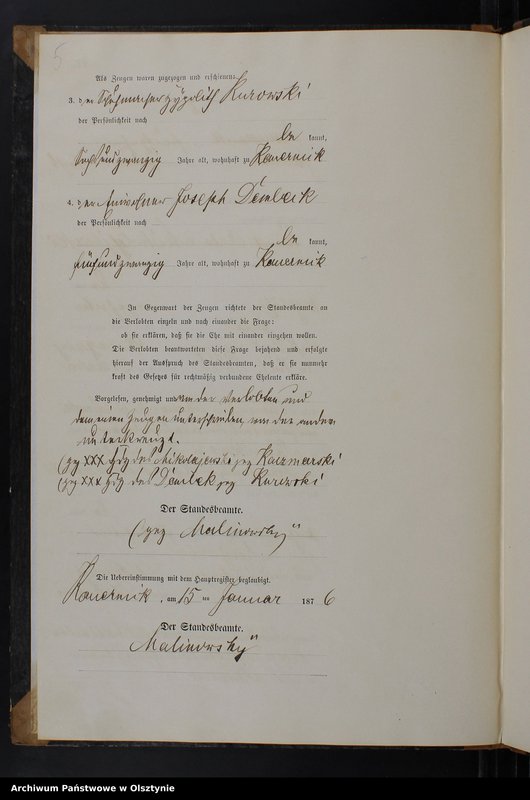 5
Als Zeugen waren zugezogen und erschienen:
3. der Schuhmacher Hypolith Kurowski
der Persönlichkeit nach
be kannt,
Sechsundzwanzig Jahre alt, wohnhaft zu Kauernik
4. der Einwohner Joseph Dembek
der Persönlichkeit nach
be kannt,
fünfundzwanzig Jahre alt, wohnhaft zu Kauernik
In Gegenwart der Zeugen richtete der Standesbeamte an
die Verlobten einzeln und nach einander die Frage:
ob sie erklären, daß sie die Ehe mit einander eingehen wollen.
Die Verlobten beantworteten diese Frage bejahend und erfolgte
hierauf der Ausspruch des Standesbeamten, daß er sie nunmehr
kraft des Gesetzes für rechtmäßig verbundene Eheleute erkläre.
Vorgelesen, genehmigt und von der Verlobten und
dem einen Zeugen unterschrieben, von den andern
unterkreuzt.
(gez XXX Hdz des Mikolajewski gez Kaczmarski
(gez XXX Hdz des Dembek gez Kurowski
Der Standesbeamte.
(gez Malinowsky"
Die Uebereinstimmung mit dem Hauptregister beglaubigt.
Kauernik, am 15 ten Januar 1876
Der Standesbeamte.
Malinowsky"
Archiwum Państwowe w Olsztynie